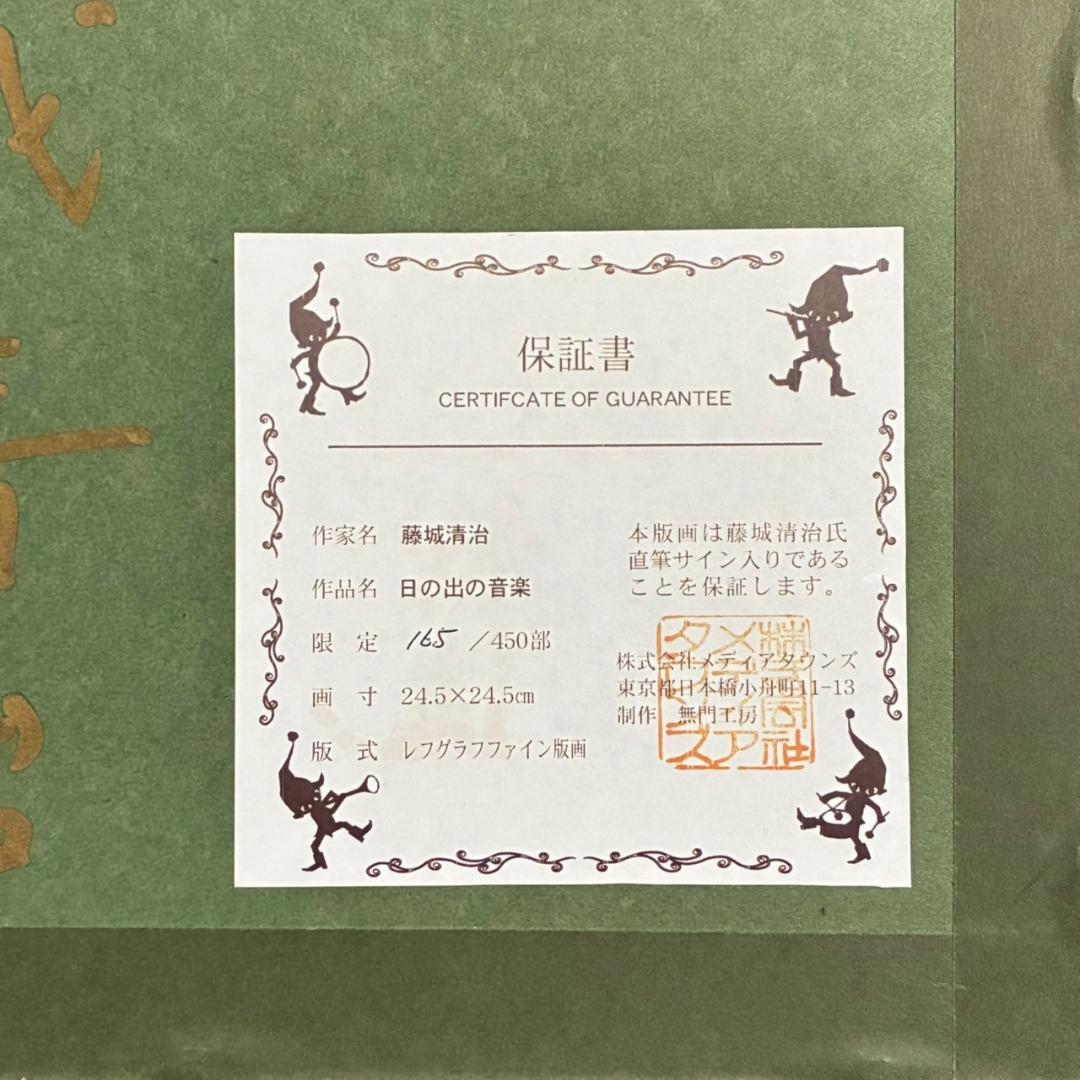 保証書
CERTIFCATE OF GUARANTEE
作家名 藤城清治
作品名 日の出の音楽
限 定 165 /450部
画 寸 24.5×24.5㎝
版 式 レフグラフファイン版画
本版画は藤城清治氏
直筆サイン入りである
ことを保証します。
株式会社メディアタウンズ
東京都日本橋小舟町11-13
制作 無門工房
株式会社
メディア
タウンズ